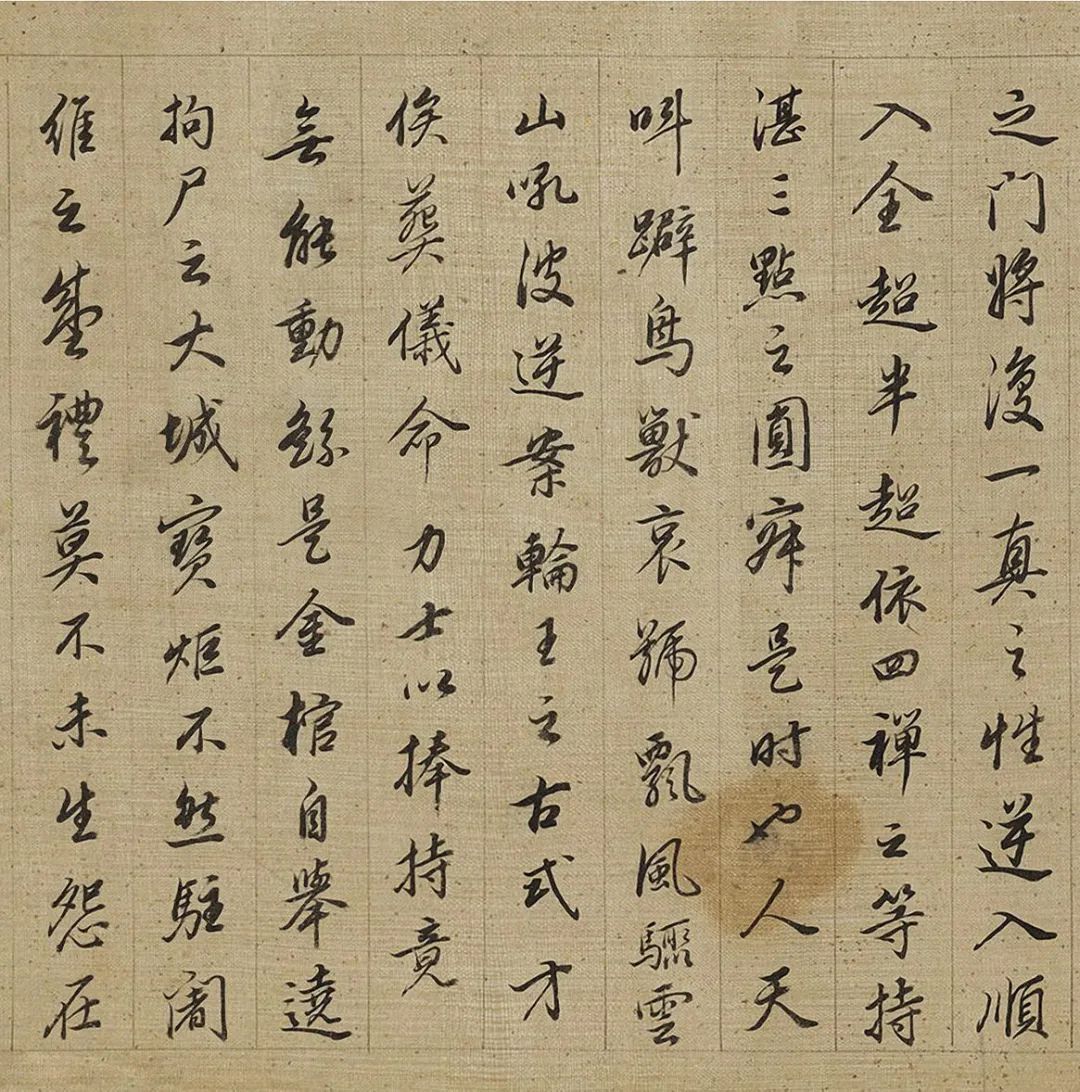 之門將復一真之性逆入順
入全超半超依四禪之等持
湛三點之圓寂是時也人天
叫躃鳥獸哀號飄風驟雲
山吼波逆案輪王之古式才
俟葬儀命力士以捧持竟
無能動繇是金棺自舉遶
拘尸之大城寶炬不然駐闍
維之盛禮莫不未生怨在